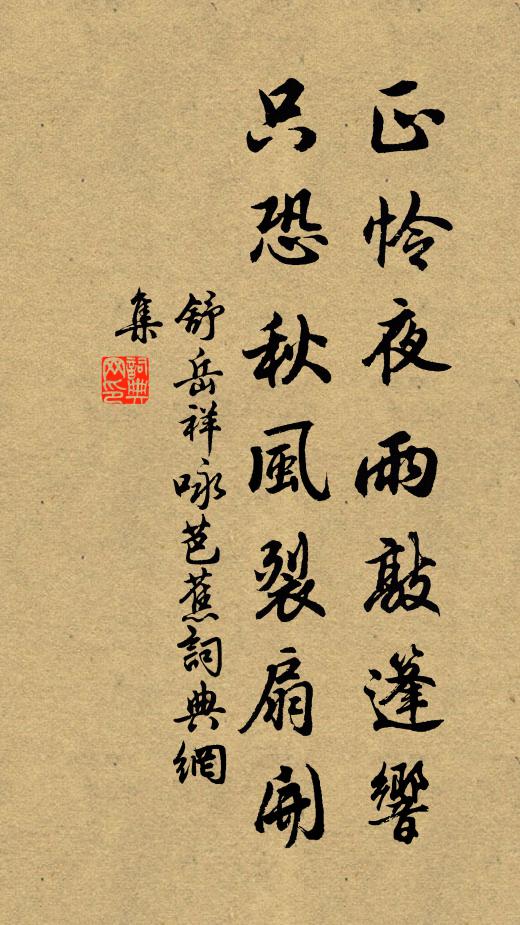 正怜夜雨敲篷響
只恐秋風裂扇開
舒岳祥咏芭蕉詞典網
集
詞典
网印